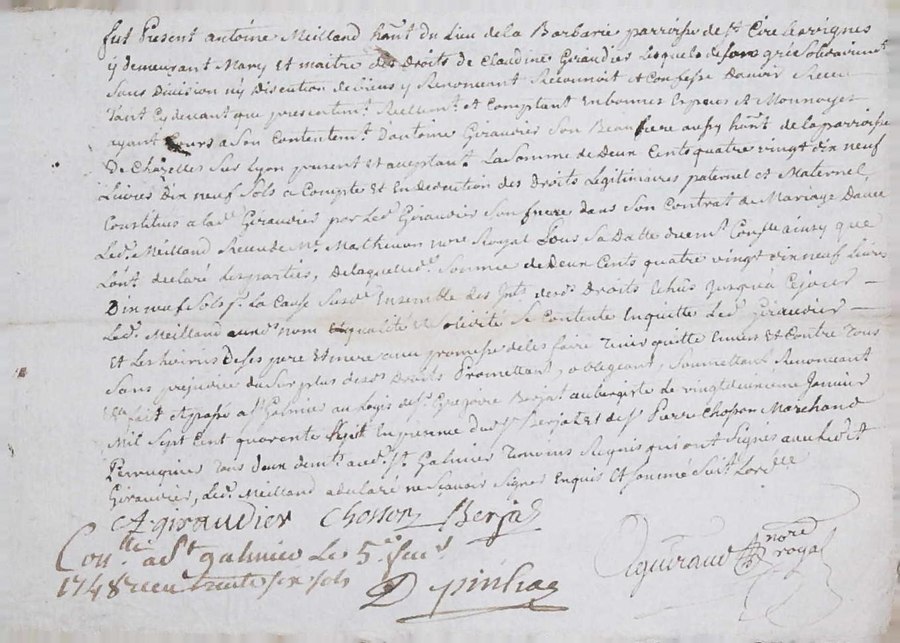 fut Present antoine Meilland hant du Lieu de la Barbarie parroisse de St Cire Lesvignes
y demeurant Mary et maitre des Droits de Claudine Giraudier Lesquels de Leurs gré solidairemt
sans Division ny Discution de biens y Renoncent Reconnoit et Confesse Davoir Receu
tant cy devant que presentemt Reellemt et Comptant En bonnes Especes et Monnoyes
ayant Cours a Son Contentemt Dantoine Giraudier Son Beau frere aussy hant de la parroisse
De Chazelles Sur Lyon present et aceptant La Somme de Deux Cents quatre vingt dix neuf
Livres Dix neuf Sols a Compte et En Deduction des Droits Legitimaires paternel et Maternel
Constitués a lade Giraudier par Led. Giraudier Son frere dans Son Contrat de Mariage Davec
Led. Meilland Receu de Me Mathevon nore Royal Sous Sa Datte ainsy que
Lont declaré Les parties, De laquelle de Somme de Deux Cents quatre vingt dix neuf Livres
Dix neuf Sols pr La Cause Susde Ensemble des Ints desds Droits Echus Jusqua Cejour —
Led. Meilland aud. nom Et qualité et Solidité Se Contente En quitte Led. Giraudier —
Et Les hoiries De Ses pere et mere avec promesse de les faire Tenir quitte Envers et Contre Tous
Sans prejudice du Surplus desds Droits Promettant, obligeant, Soumettant Renonceant
fait et passé a St Galmier au Logis de Sr Gregoire Berjat aubergiste Le vingt deuxieme Janvier
Mil Sept Cent quarente huit En presence dud. Sr Berjat et de Sr Pierre Chosson Marchand
Perruquier Tous deux demts aud. St Galmier Temoins Requis qui ont Signés avec Led.
Giraudier, Led. Meilland a declaré ne Scavoir Signer Enquis Et Sommé
A giraudier Chosson Berjat
Conllé a St galmier Le 5e fevr
1748 receu trente six sols
Dpinhac
nore
royal